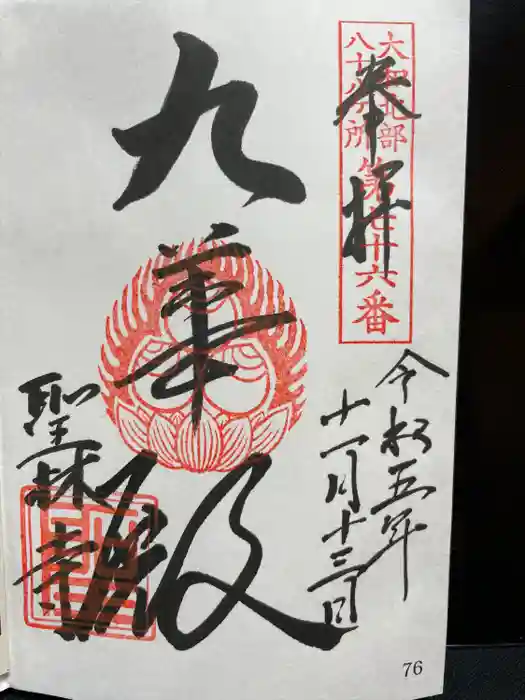 大和北部
八十八ヶ所
第七十六番
奉拝
令和五年
十一月十三日
九華殿
聖林寺
76